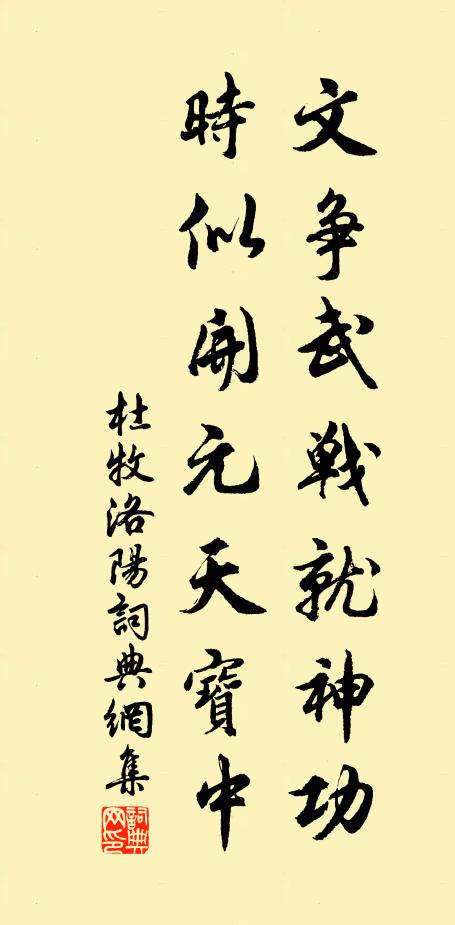 文争武戰就神功
時似開元天寶中
杜牧洛陽詞典網集
詞典
网印